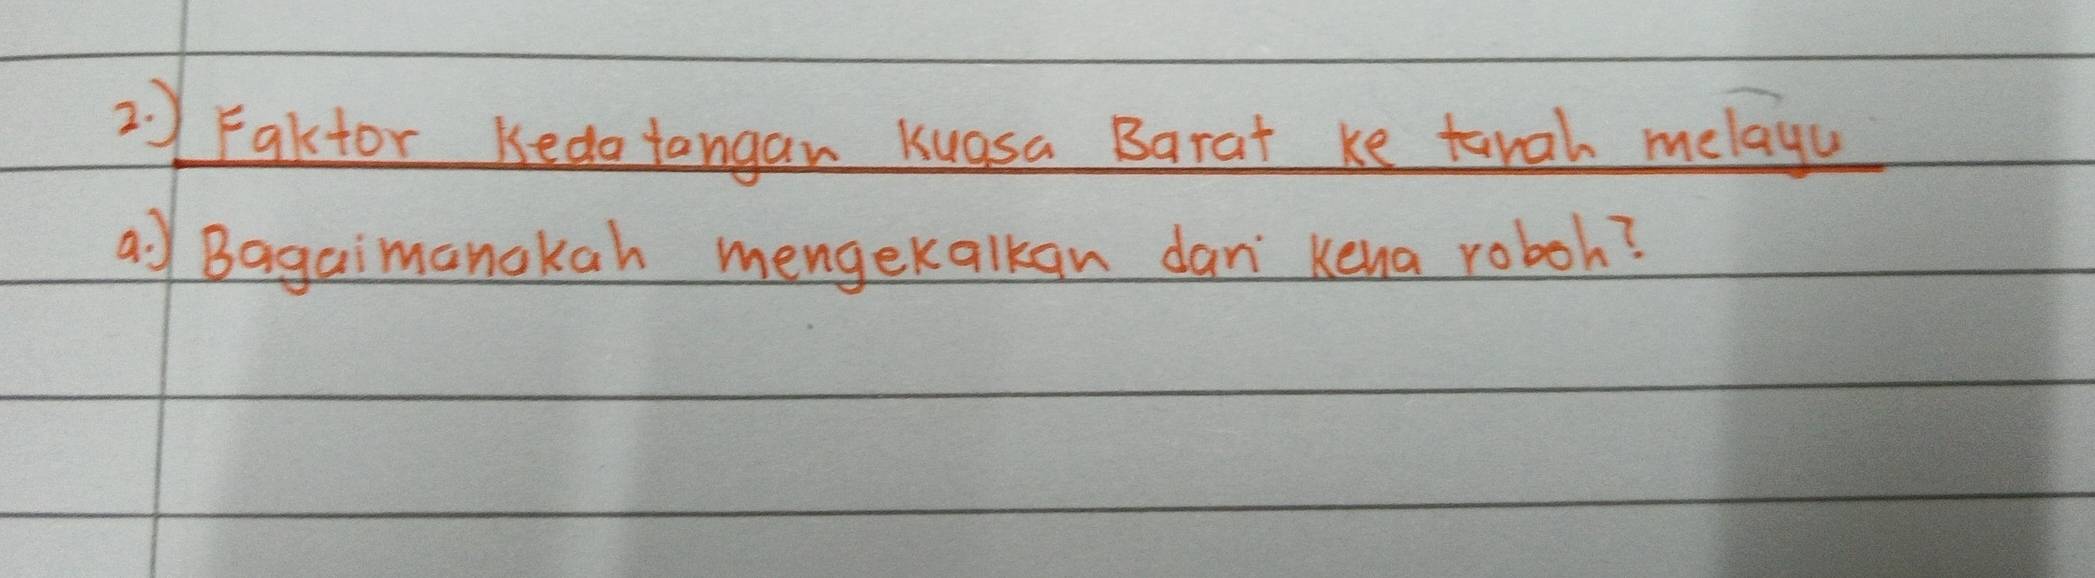 2.) Faktor Kedatangan Kuasa Barat ke tanah melayu
a.) Bagaimanakah mengekalkan dari kena roboh?